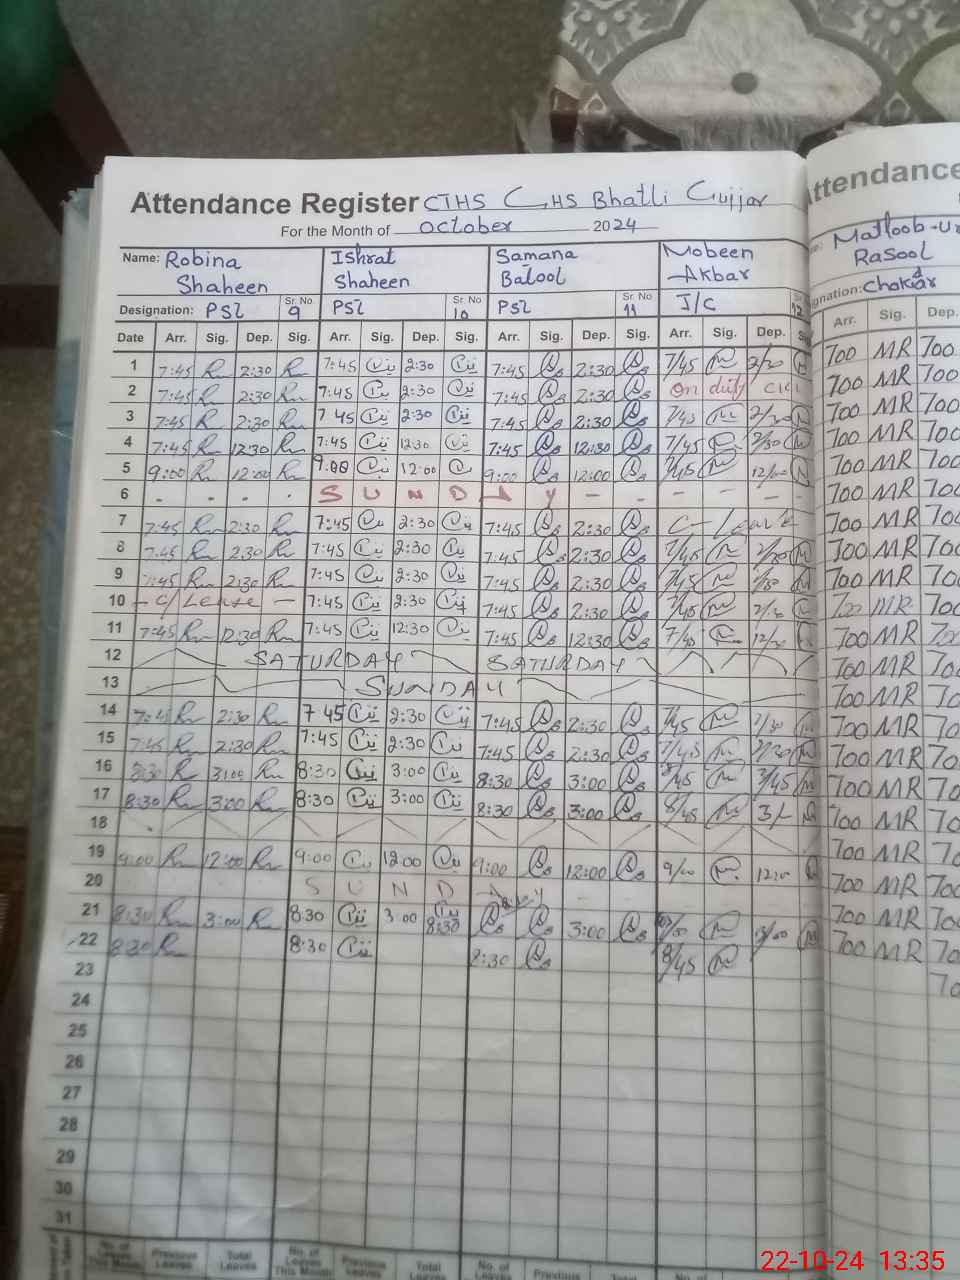 Attendance Register GTHS GHS Bhatli Gujjar
For the Month of October 2024
Name: Robina Shaheen Ishrat Shaheen Samana Batool Mobeen Akbar
Designation: PST Sr. No. 9 PST Sr. No. 10 PST Sr. No. 11 J/C 12
Date Arr. Sig. Dep. Sig. Arr. Sig. Dep. Sig. Arr. Sig. Dep. Sig. Arr. Sig. Dep.
1 7:45 2:30 7:45 2:30 7:45 2:30 7/45 2/30
2 7:45 2:30 7:45 2:30 7:45 2:30 On duty
3 7:45 2:30 7 45 2:30 7:45 2:30 7/45
4 7:45 12:30 7:45 12:30 7:45 12:30 7/45
5 9:00 12:00 9:00 12:00 9:00 12:00 12/00
6 - - - - S U N D A Y - - - - - -
7 7:45 2:30 7:45 2:30 7:45 2:30 C-Leave
8 7:45 2:30 7:45 2:30 7:45 2:30 7/45
9 7:45 2:30 7:45 2:30 7:45 2:30 7/45
10 - C/Leave - 7:45 2:30 7:45 2:30
11 7:45 12:30 7:45 12:30 7:45 12:30
12 SATURDAY SATURDAY
13 SUNDAY
14 7:45 2:30 7 45 2:30 7:45 2:30 7/45 2/30
15 7:45 2:30 7:45 2:30 7:45 2:30 7/45 2/30
16 8:30 3:00 8:30 3:00 8:30 3:00 3/45
17 8:30 3:00 8:30 3:00 8:30 3:00 8/45 3/-
18
19 9:00 12:00 9:00 12:00 9:00 12:00 9/00
20 S U N D A Y
21 8:30 3:00 8:30 3:00 8:30 3:00
22 8:30 8:30 8:30 8/45
23
24
25
26
27
28
29
30
31
No. of Leaves This Month Previous Leaves Total Leaves No. of Leaves This Month Previous Leaves Total Leaves No. of Leaves Previous Total No. of
Attendance
Matloob-ur
Rasool
Chokidar
Arr. Sig. Dep.
700 MR 700
700 MR 700
700 MR 700
700 MR 700
700 MR 700
700 MR 700
700 MR 700
700 MR 700
700 MR 700
700 MR 700
700 MR 700
700 MR 70
700 MR 70
700 MR 70
700 MR 70
700 MR 70
700 MR 70
700 MR 70
700 MR 70
700 MR 70
700 MR 70
70
22-10-24 13:35